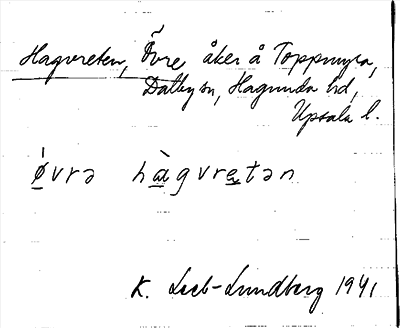 Hagvreten, Övre åker å Toppmyra,
Dalby sn, Hagunda hd,
Upsala l.
ø̀vrə hàgvretən
K. Leeb-Lundberg 1941